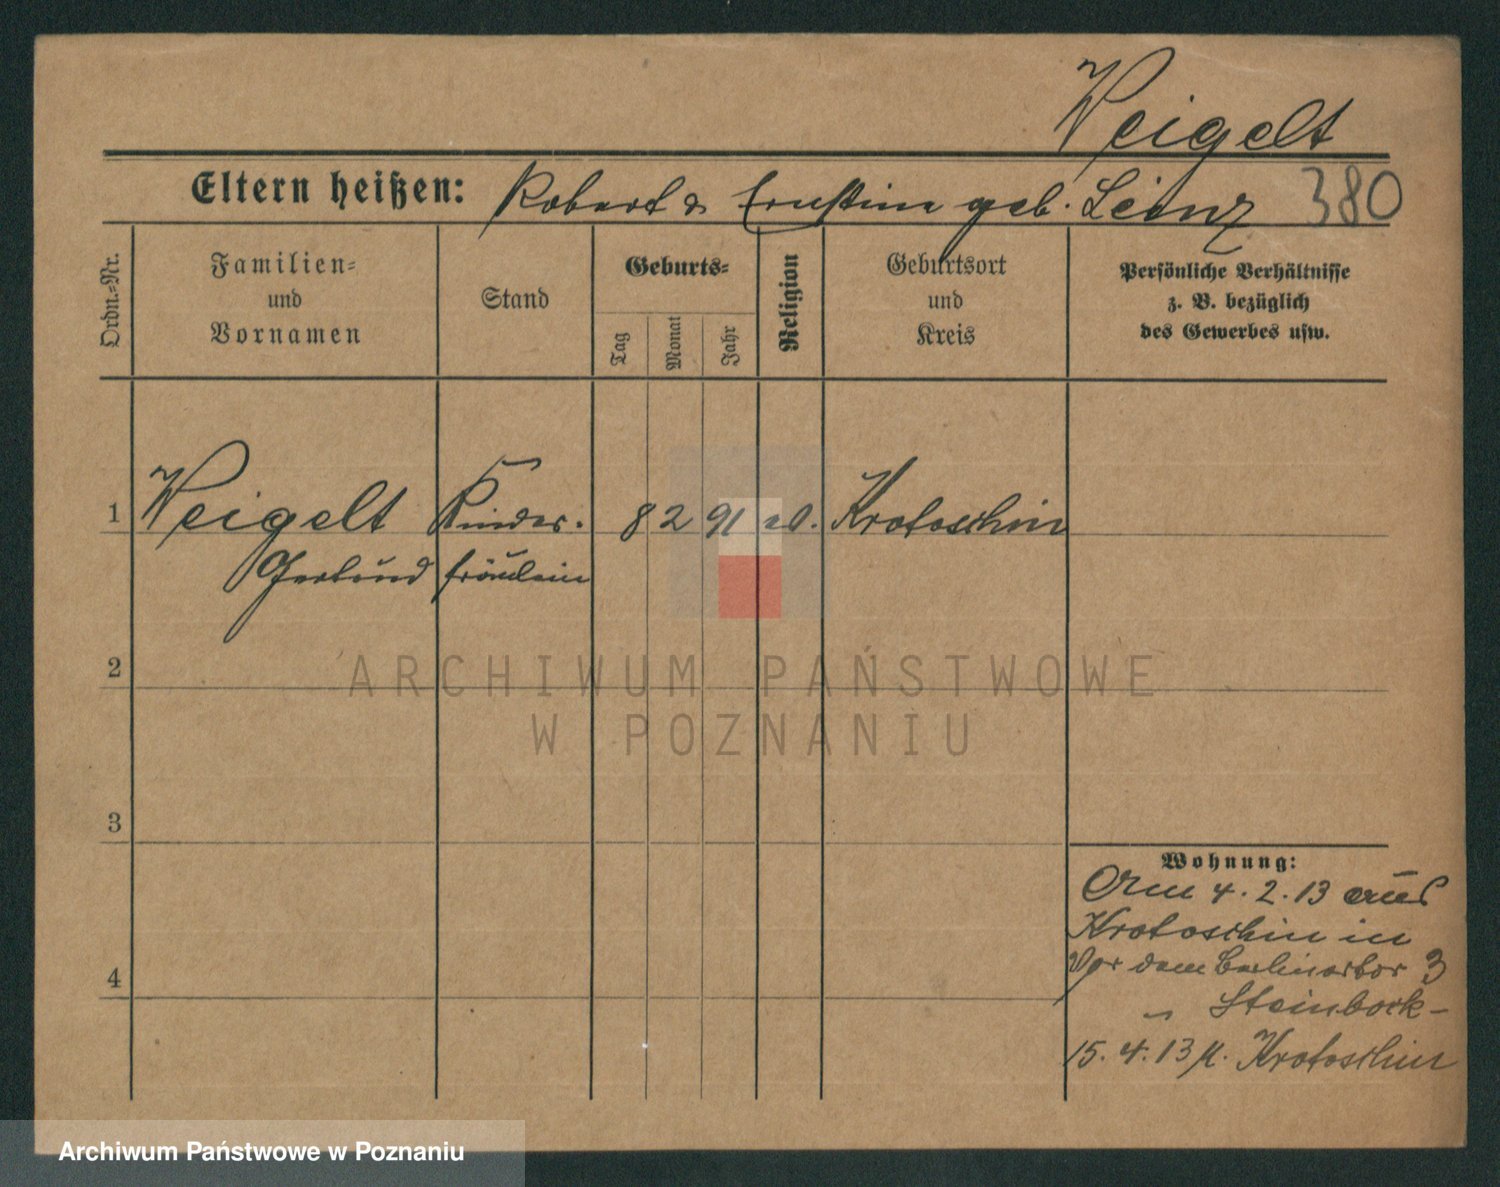 Weigelt
Eltern heißen: Robert & Ernstine geb. Lienz 380
Ordn.=Nr.
Familien=
und
Vornamen
Stand
Geburts=
Tag
Monat
Jahr
Religion
Geburtsort
und
Kreis
Persönliche Verhältnisse
z. B. bezüglich
des Gewerbes usw.
1 Weigelt Kinder. 8 2 91 ev. Krotoschin
Gertrud fräulein
2
3
4
Wohnung:
Am 4.2.13 aus
Krotoschin in
Vor dem Berlinertor 3
" Steinbock-
15.4.13 n. Krotoschin
ARCHIWUM PAŃSTWOWE
W POZNANIU
Archiwum Państwowe w Poznaniu